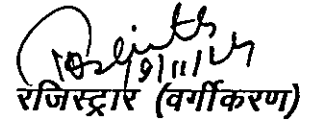 9/11/24
रजिस्ट्रार (वर्गीकरण)